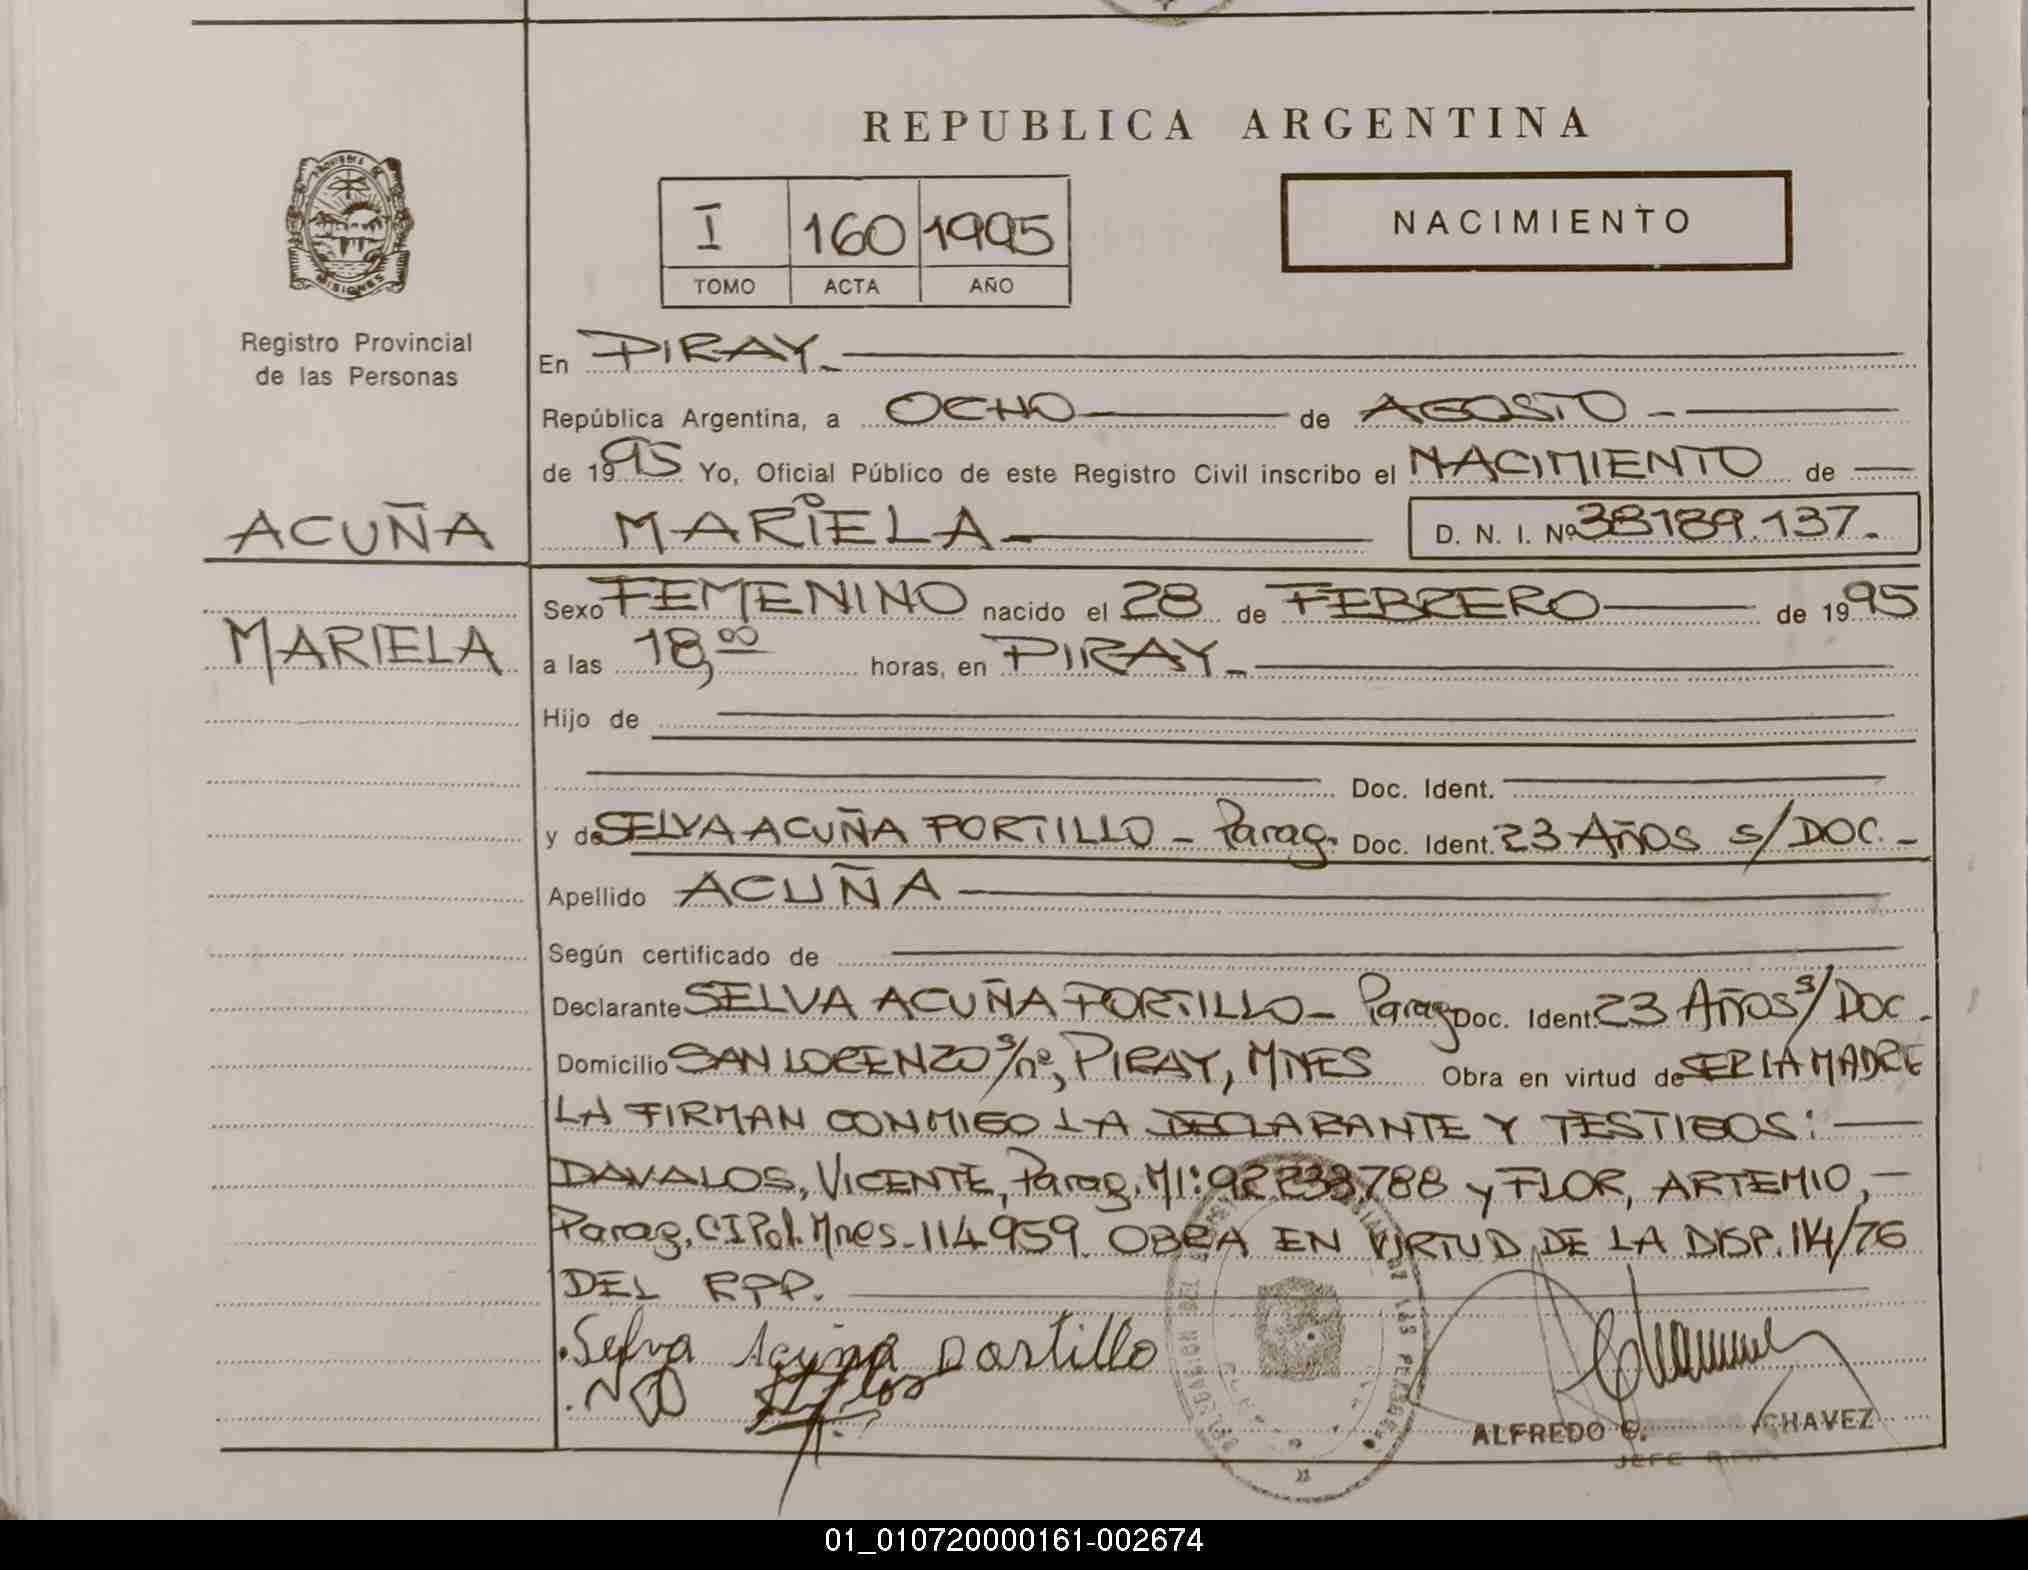 REPUBLICA ARGENTINA
PROVINCIA DE MISIONES
Registro Provincial
de las Personas
I 160 1995
TOMO ACTA AÑO
NACIMIENTO
En PIRAY
República Argentina, a OCHO de AGOSTO
de 1995 Yo, Oficial Público de este Registro Civil inscribo el NACIMIENTO de
ACUÑA
MARIELA
D. N. I. Nº 38189.137.
MARIELA
Sexo FEMENINO nacido el 28 de FEBRERO de 1995
a las 18,00 horas, en PIRAY
Hijo de
Doc. Ident.
y de SELVA ACUÑA PORTILLO - Parag. Doc. Ident. 23 AÑOS s/DOC.-
Apellido ACUÑA
Según certificado de
Declarante SELVA ACUÑA PORTILLO - Parag Doc. Ident. 23 AÑOS s/DOC.
Domicilio SAN LORENZO s/nº, PIRAY, MNES Obra en virtud de SER LA MADRE
LA FIRMAN CONMIGO LA DECLARANTE Y TESTIGOS:
DAVALOS, VICENTE, Parag. MI: 92.238.788 y FLOR, ARTEMIO,-
Parag. CI Pol. Mnes. 114959. OBRA EN VIRTUD DE LA DISP. 14/76
DEL RPP.
Selva Acuña Portillo
ALFREDO CHAVEZ
JEFE
01_010720000161-002674